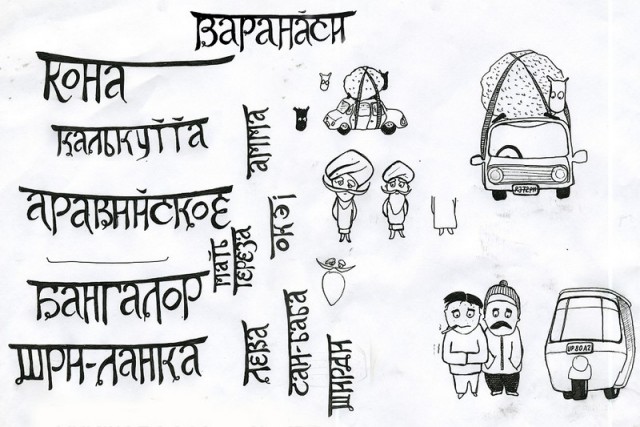 Варанаси
Кона
Калькутта
Аравийское
Бангалор
Шри-Ланка
Амма
Окэй
Мать
Тереза
Лева
Саи-Баба
Ширди
UP 80 AZ